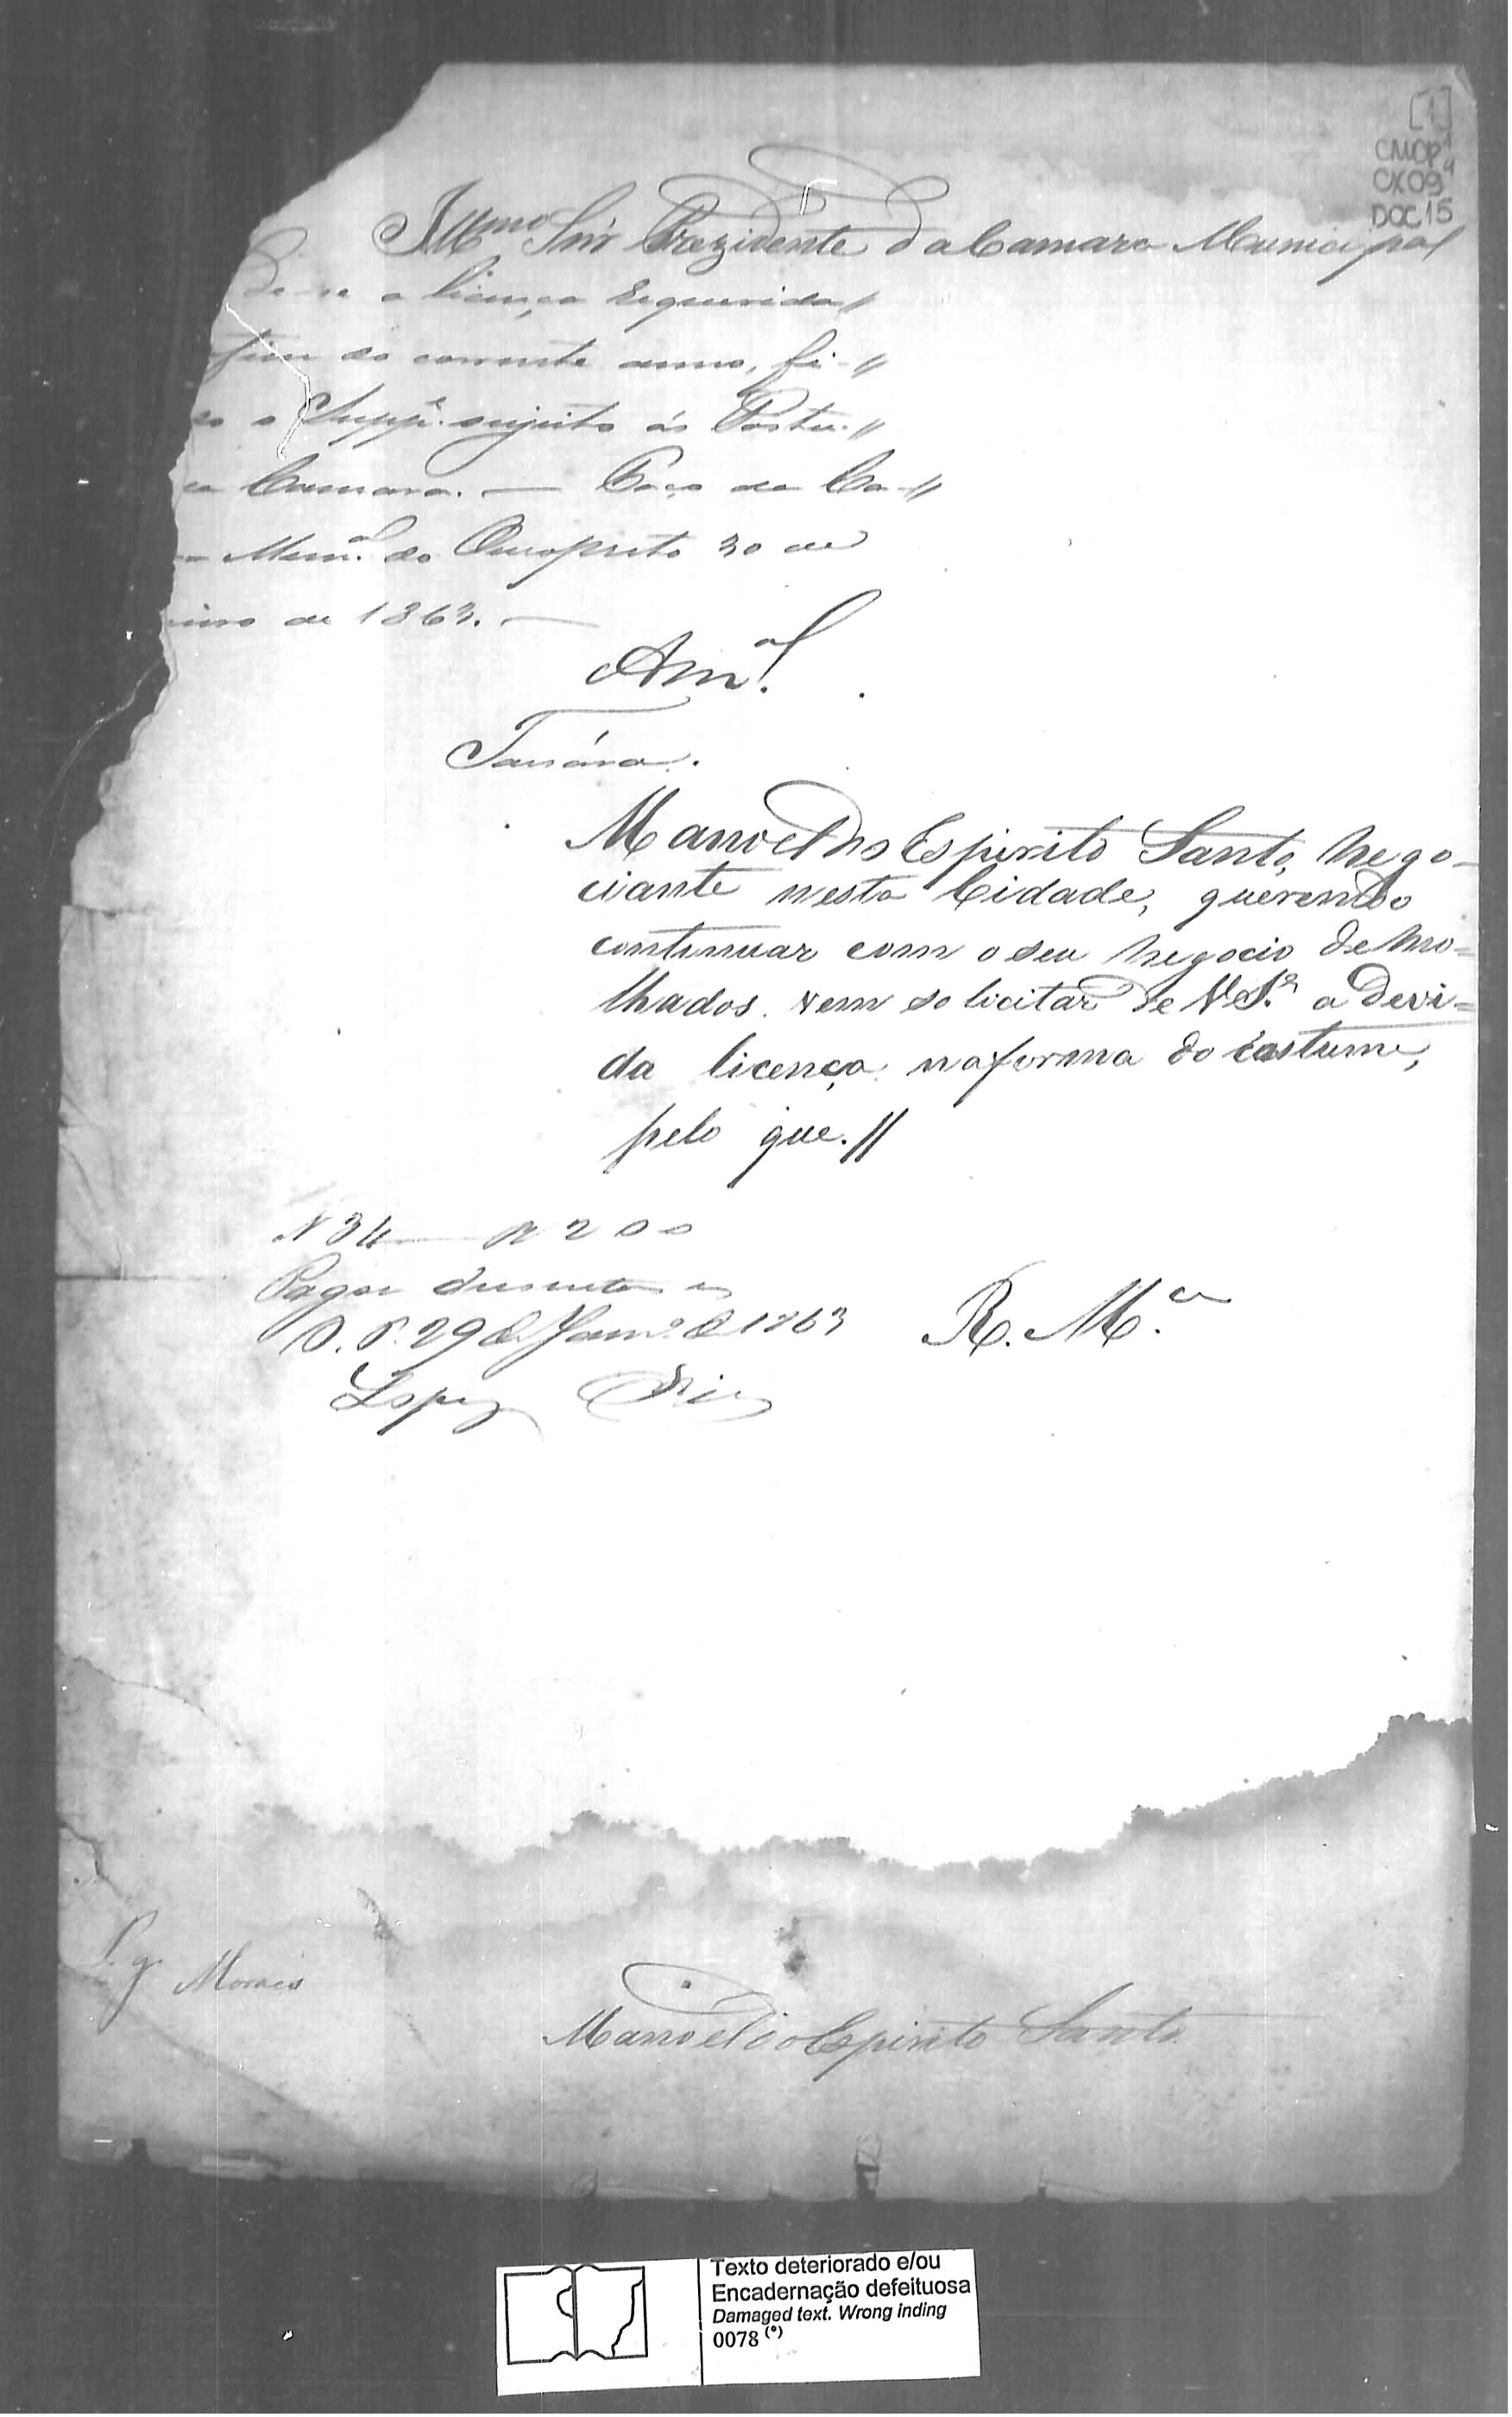 [1]
CMOP
CX 09
DOC 15
Illmo Snr Prezidente da Camara Municipal
de-se a licença requerida //
fim do corrente anno, fi- //
do o Suppe. sujeito ás Postu- //
Camara. — Paço da Ca- //
Munal. do Ouropreto 30 de
de 1863. —
Manoel do Espirito Santo, nego-
ciante nesta Cidade, querendo
continuar com o seu negocio de mo-
lhados, vem solicitar de V Sa. a devi-
da licença na forma do costume,
pelo que. //
N 34 — R 200
Pagou duzentos rs
O. P. 29 de Janro. de 1863
Lopes Dias
R. Mce.
P. g. Moraes
Manoel do Espirito Santo
Texto deteriorado e/ou
Encadernação defeituosa
Damaged text. Wrong inding
0078 (*)